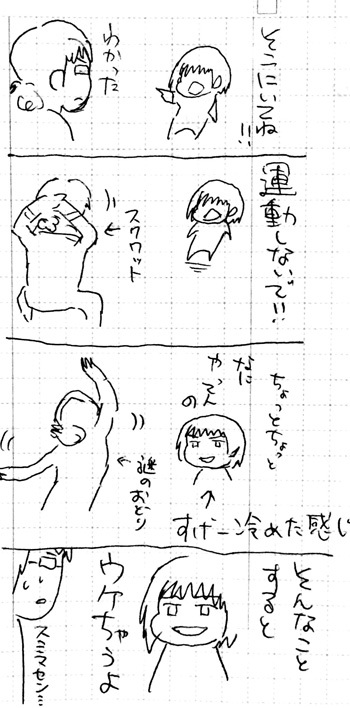 そこにいてね!!
わかった
運動しないで!!
スクワット
ちょっとちょっと
なに
やってんの
謎のおどり
すげー冷めた感じ
そんなこと
すると
ウケちゃうよ
スミマセン…